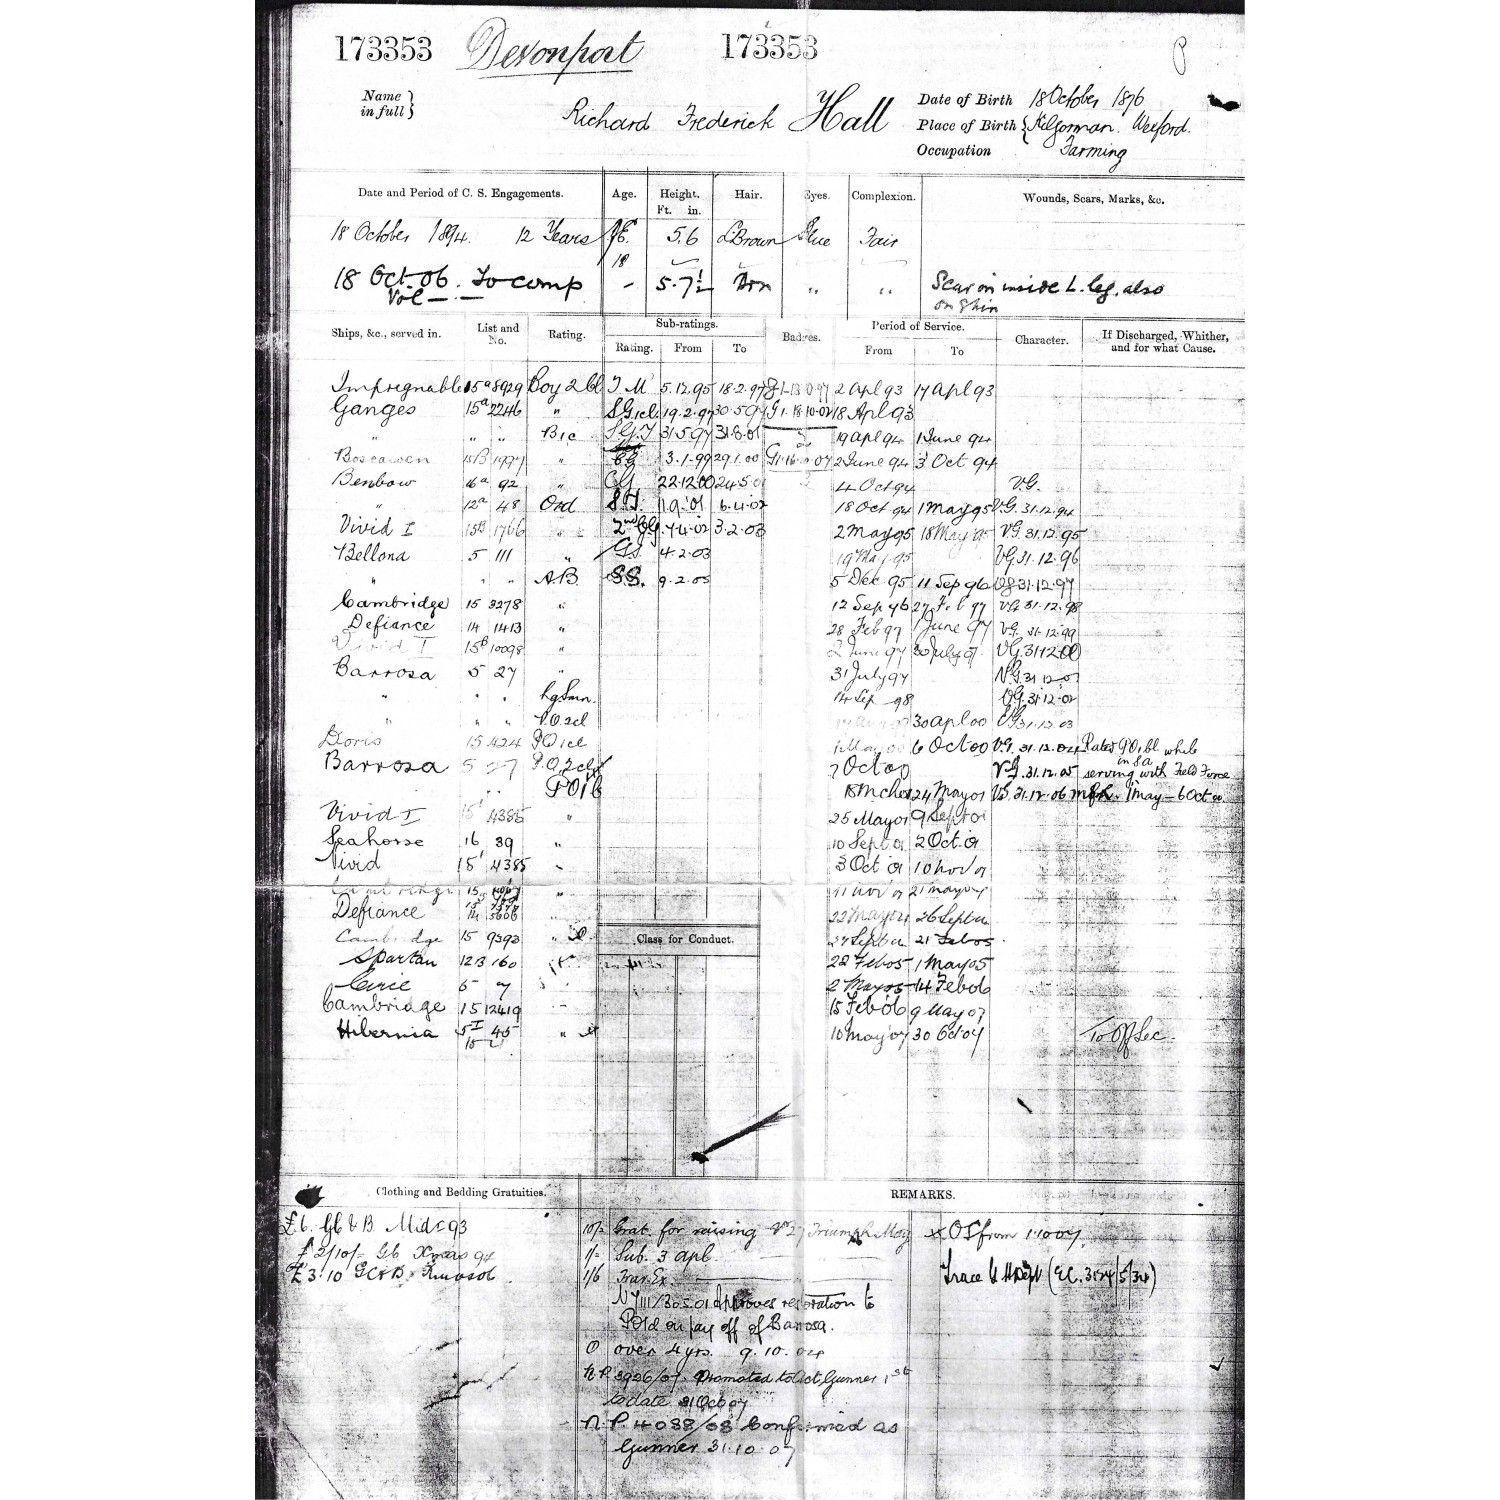 173353 Devonport 173353
Name in full } Richard Frederick Hall
Date of Birth 18 October 1876
Place of Birth { Kilgorman. Wexford.
Occupation Farming
Date and Period of C. S. Engagements. Age. Height. Ft. in. Hair. Eyes. Complexion. Wounds, Scars, Marks, &c.
18 October 1894. 12 Years 18 5.6 L. Brown Blue Fair
18 Oct. 06. To comp - 5.7½ Brn " " Scar on inside L. leg, also
Vol on Shin
Ships, &c., served in. List and No. Rating. Sub-ratings. Rating. From To Badges. Period of Service. From To Character. If Discharged, Whither, and for what Cause.
Impregnable 15a 8929 Boy 2 cl T.M 5.12.95 18.2.97 2 Apl 93 17 Apl 93
Ganges 15a 2246 " S.G. 1cl 19.2.97 30.5.97 G1.18.10.02 18 Apl 93
" " " B1c S.G.T 31.5.97 31.8.01 19 Apl 94 1 June 94
Boscawen 15B 1997 " 3.1.99 29.1.00 2 June 94 3 Oct 94
Benbow 16a 92 " 22.12.00 24.5.01 4 Oct 94 V.G.
" 12a 48 Ord 6.4.02 18 Oct 94 1 May 95 V.G. 31.12.94
Vivid I 15B 1766 " 7.4.02 3.2.03 2 May 95 18 May 95 V.G. 31.12.95
Bellona 5 111 " 4.2.03 19 May 95 V.G 31.12.96
" " " A.B S.S. 9.2.05 5 Dec 95 11 Sep 96 VG 31.12.97
Cambridge 15 3278 " 12 Sep 96 27 Feb 97 V.G. 31.12.98
Defiance 14 1413 " 28 Feb 97 1 June 97 V.G. 31.12.99
Vivid I 15B 10098 " 2 June 97 30 July 97 V.G. 31.12.00
Barrosa 5 27 " 31 July 97 V.G. 31.12.01
" " " Lg Smn. 14 Sep 98 V.G. 31.12.02
" " " P.O. 2cl 30 Apl 00 V.G 31.12.03
Doris 15 424 P.O 1cl 1 May 00 6 Oct 00 V.G. 31.12.04 Rated P.O. 1cl. while
Barrosa 5 27 P.O. 2cl 7 Oct 00 V.G. 31.12.05 in S.a serving with Field Force
" " P.O 1c 24 May 01 V.G. 31.12.06 1 May - 6 Oct 00
Vivid I 15 4385 " 25 May 01 9 Sept 01
Seahorse 16 39 " 10 Sept 01 2 Oct. 01
Vivid 15 4385 " 3 Oct 01 10 Nov 01
Cambridge 15 " 11 Nov 01 21 May 04
Defiance 14 5606 " 22 May 04 26 Sept 04
Cambridge 15 9393 " 27 Sept 04 21 Feb 05
Spartan 12B 160 22 Feb 05 1 May 05
Circe 5 7 2 May 05 14 Feb 06
Cambridge 15 12419 15 Feb 06 9 May 07
Hibernia 5I 45 " 10 May 07 30 Oct 07 To Off Sec.
15
Class for Conduct.
Clothing and Bedding Gratuities. REMARKS.
£6. Gb & B. Mids 93
£2/10/- Gb Xmas 94
£3.10 GC & B.
10/- Grat. for raising No 27 Triumph May
1/- Sub. 3 Apl
1/6 Trav. Ex.
NY111/30.5.01 Approves restoration to
PO1cl on pay off of Barrosa.
O over 4 yrs. 9.10.04
N.P. 3926/07. Promoted to Act Gunner 1st
to date 31 Oct 07
N.P. 4088/08 Confirmed as
Gunner 31.10.07
x OS from 1.10.07.
Trace